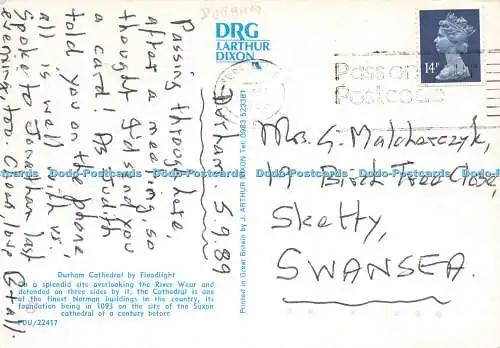 DURHAM
DRG
J.ARTHUR
DIXON
14P
Pass on
Postcode
Durham 5.9.89
Passing through here,
after a meeting, so
thought I'd send you
a card! As Judith
told you on the phone,
all is well with us;
Spoke to Jonathan last
evening, too. Love
E + all.
Mrs. G. Malcharczyk,
19 Birch Tree Close,
Sketty,
SWANSEA.
Printed in Great Britain by J. ARTHUR DIXON Tel: 0983 523381
Dodo-Postcards Dodo-Postcards Dodo-Postcards Dodo-Postcards Dodo-Postcards
Durham Cathedral by Floodlight
On a splendid site overlooking the River Wear and
defended on three sides by it, the Cathedral is one
of the finest Norman buildings in the country, its
foundation being in 1093 on the site of the Saxon
cathedral of a century before
PDU/22417